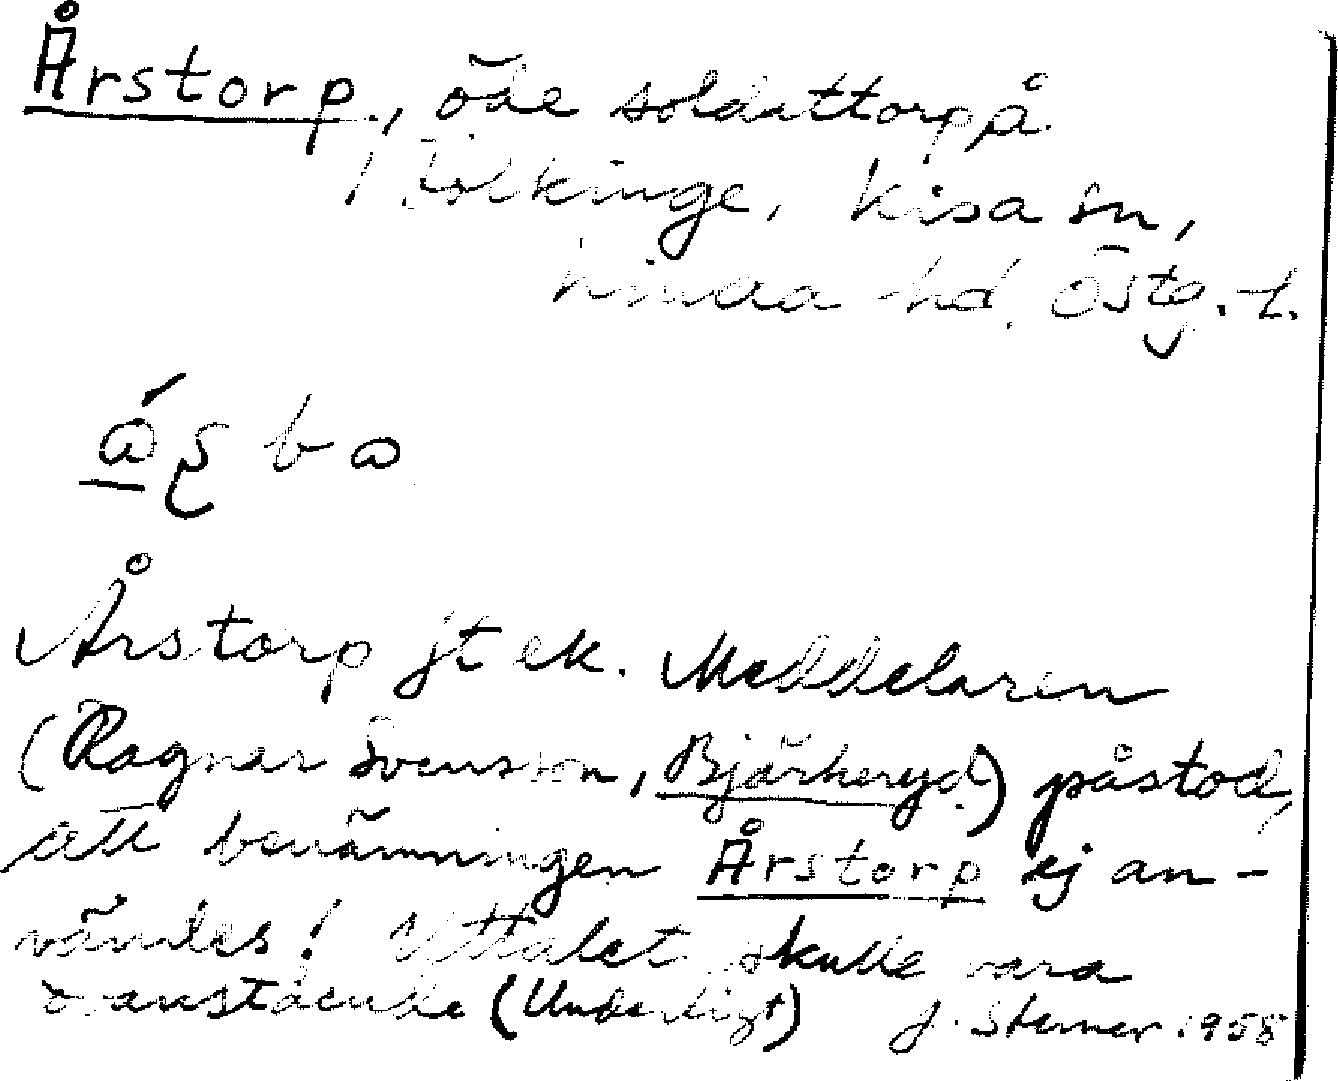 Årstorp, öde soldattorp på
Tolkinge, Kisa sn,
Kinda hd. Östg. l.
Årstorp jt ek. Meddelaren
(Ragnar Svensson, Björkeryd) påstod,
att benämningen Årstorp ej an-
vändes! Uttalet skulle vara
ovanstående (Underligt) J. Sterner 1958